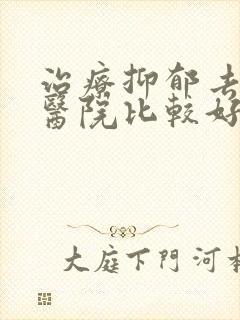 治療抑郁去
醫院比較好
大庭下門河